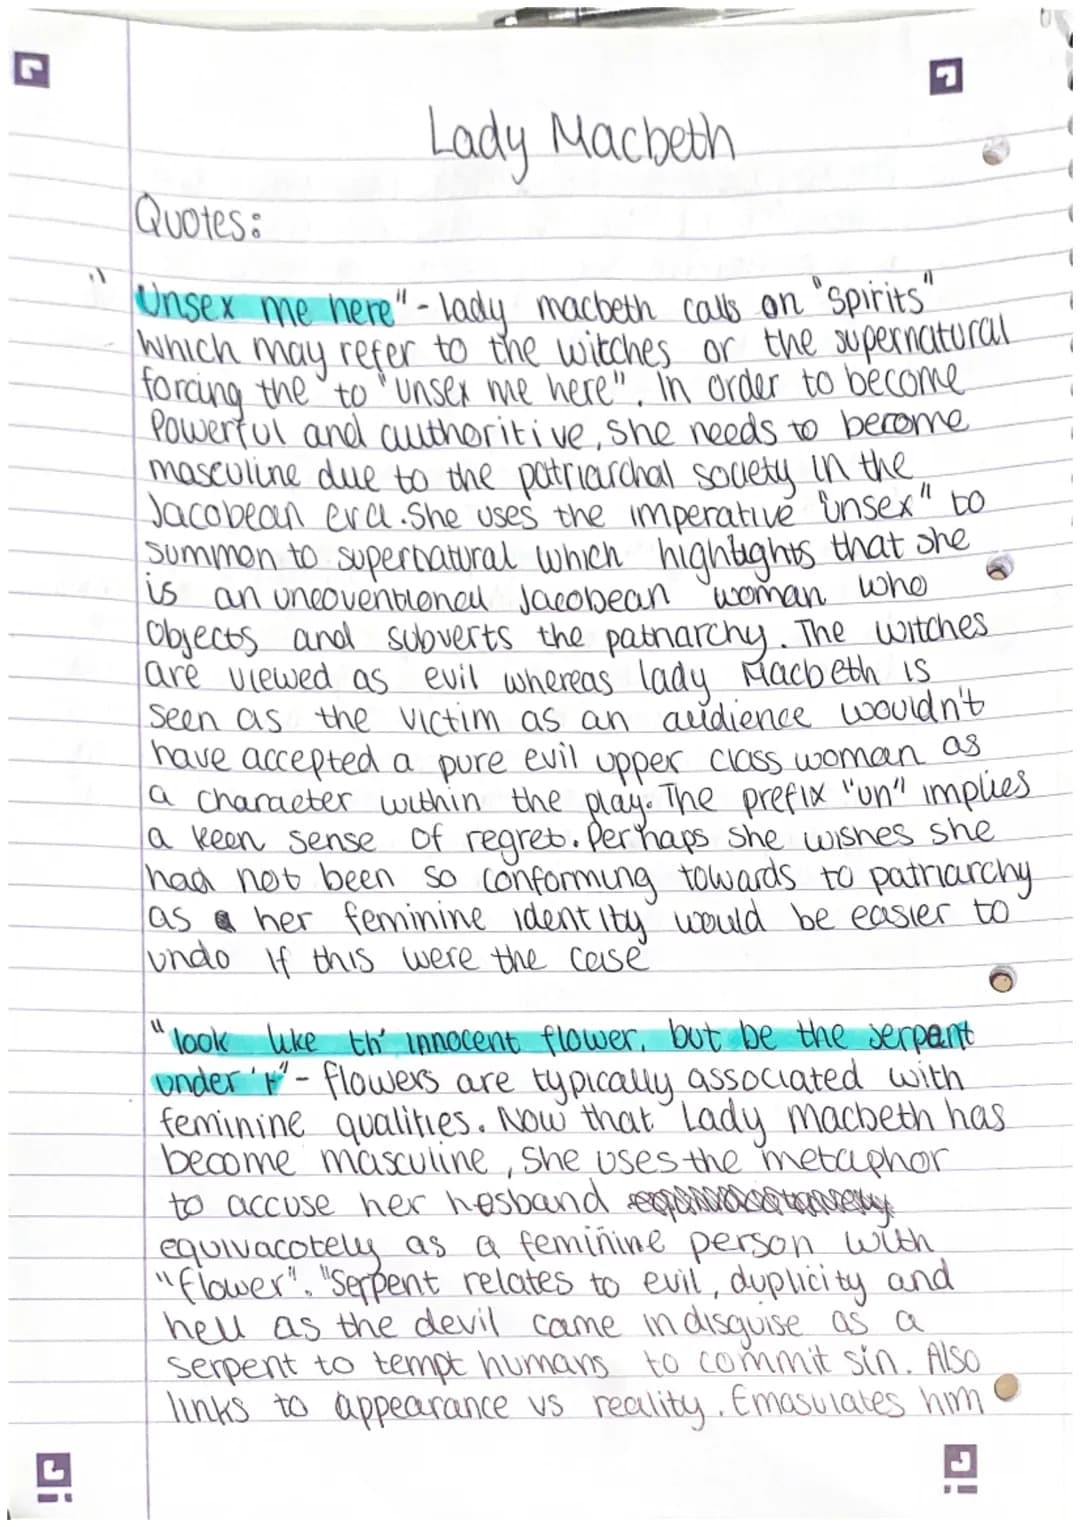 Lady Macbeth
Quotes:
"Unsex me here" - lady macbeth calls on "spirits"
which may refer to the witches or the supernatural
forcing the to "unsex me here". In order to become
Powerful and authoritive, she needs to become
masculine due to the patriarchal society in the
Jacobean era. She uses the imperative "unsex" to
summon to supernatural which highlights that she
is an uncoventional Jacobean woman who
objects and subverts the patriarchy. The witches
are viewed as evil whereas lady Macbeth is
seen as the victim as an audience wouldn't
have accepted a pure evil upper class woman as
a character within the play. The prefix "un" implies
a keen sense of regret. Perhaps she wishes she
had not been so conforming towards to patriarchy
as her feminine identity would be easier to
undo if this were the case
"look like th' innocent flower, but be the serpent
under 't" - flowers are typically associated with
feminine qualities. Now that Lady macbeth has
become masculine, she uses the metaphor
to accuse her hosband
equivacotely as a feminine person with
"flower". "Serpent relates to evil, duplicity and
hell as the devil came in disguise as a
serpent to tempt humans to commit sin. Also
links to appearance vs reality. Emasulates him